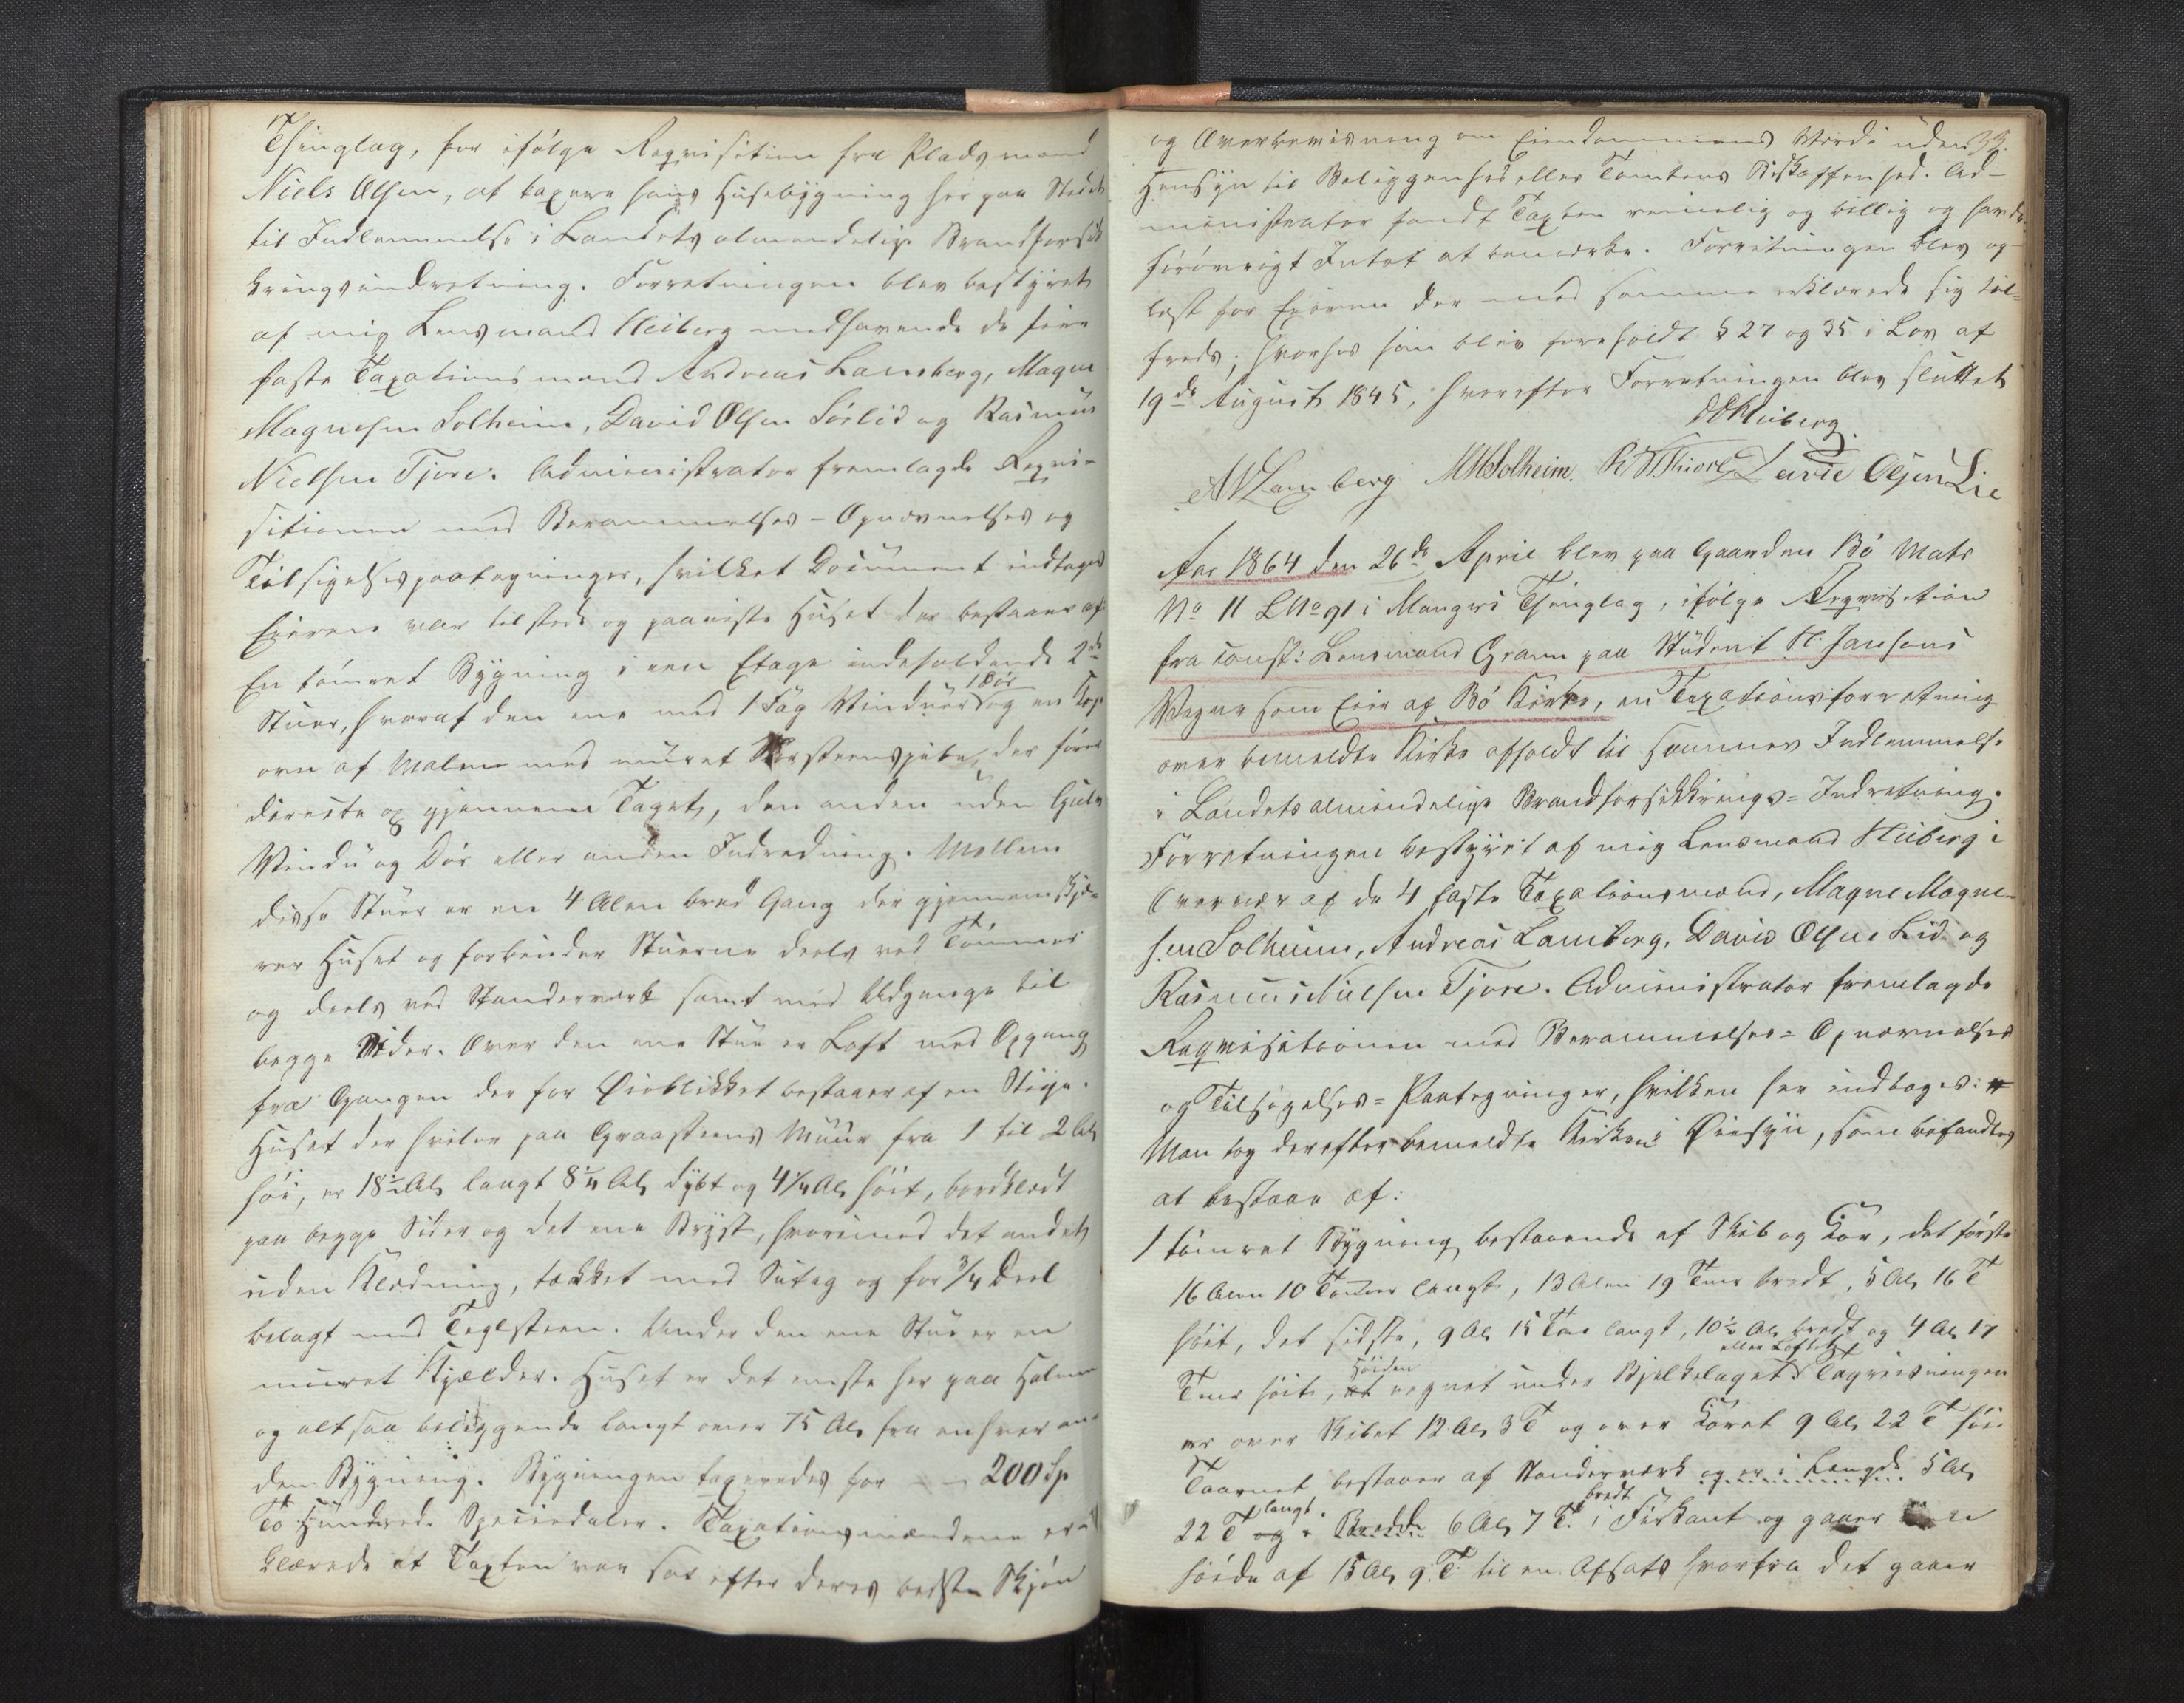 Thinglag, for ifølge Reqvisition fra Pladsmand
Niels Olsen, at taxere hans Huusebygning her paa Stedet
til Indlemmelse i Landets almindelige Brandforsik
kringsindretning. Forretningen blev bestyret
af mig Lensmand Heiberg medhavende de fire
faste Taxationsmænd Andreas Lamberg, Magne
Magnesen Solheim, David Olsen Sørlid og Rasmus
Nielsen Tjore. Administrator fremlagde Reqvi-
sitionen med Berammelses- Opnævnelses og
Tilsigelsespaategninger, hvilket Document indtages
Eieren var tilstede og paaviste Huset der bestaaer af
En tømret Bygning i een Etage indeholdende 2de
Stuer, hvoraf den ene med 1 Fag Vinduer 1 Dør og en
ovn af Malm med muret Skorsteenspibe, der fører
directe op gjennem Taget, den anden uden Gulv
Vindu og Dør eller anden Indredning. Mellem
disse Stuer er en 4 Alen bred Gang der gjennemskjæ-
rer Huset og forbinder Stuerne deels ved Tømmer
og deels ved Standerværk samt med Udgange til
begge Sider. Over den ene Stue er Loft med Opgang
fra Gangen der for Øieblikket bestaaer af en Stige.
Huset der hviler paa Graasteens Muur fra 1 til 2 Al
høi, er 18½ Al langt 8¼ Al dybt og 4¼ Al høit, bordklædt
paa begge Sider og det ene Bryst, hvorimod det andet
uden Klædning, tækket med Sutag og for ¾ Deel
belagt med Teglsteen. Under den ene Stue er en
muret Kjælder. Huset er det eneste her paa Holmen
og altsaa beliggende langt over 75 Al fra enhver an
den Bygning. Bygningen taxeredes for – – 200 Sp
To Hundrede Speciedaler. Taxationsmændene er-
klærede at Taxten var sat efter deres bedste Skjøn
og Overbeviisning om Eiendommens Værdi uden 33.
Hensyn til Beliggenhed eller Tomtens Beskaffenhed. Ad-
ministrator fandt Taxten rimelig og billig og havde
forøvrigt Intet at bemærke. Forretningen blev op-
læst for Eieren der med samme erklærede sig til-
freds; hvorhos han blev foreholdt § 27 og 35 i Lov af
19de August 1845, hvorefter Forretningen blev sluttet
Heiberg
Lamberg MMSolheim. Lavic Olsen Lie
Aar 1864 den 26de April blev paa Gaarden Bø Matr
No 11 LNo 91 i Mangers Thinglag, ifølge Reqvisition
fra const: Lensmand Gram paa Student H. Jansons
Vegne som Eier af Bø Kirke, en Taxationsforretning
over bemeldte Kirke afholdt til sammes Indlemmelse
i Landets almindelige Brandforsikkrings-Indretning.
Forretningen bestyret af mig Lensmand Heiberg i
Overvær af de 4 faste Taxationsmænd, Magne Magne-
sen Solheim, Andreas Lamberg, David Olsen Lid og
Rasmus Nielsen Tjore. Administrator fremlagde
Reqvisitionen med Berammelses- Opnævnelses
og Tilsigelses- Paategninger, hvilken her indtages:
Man tog derefter bemeldte Kirke i Øiesyn, som befandtes
at bestaae af:
1 tømret Bygning bestaaende af Skib og Kor, det første
16 Alen 10 Tommer langt, 13 Alen 19 Tmr bredt, 5 Al 16 T
høit, det sidste, 9 Al 15 Tmr langt, 10½ Al bredt og 4 Al 17
Tmr høit, Høiden regnet under Bjelkelaget eller Loftet Tagreisningen
er over Skibet 12 Al 3 T og over Koret 9 Al 22 T høi
Taarnet bestaaer af Standerværk og er i Længde 5 Al
22 T langt. og i Bredde 6 Al 7 T. bredt i Firkant og gaaer
høide af 15 Al 9 T til en Afsats hvorfra det gaaer